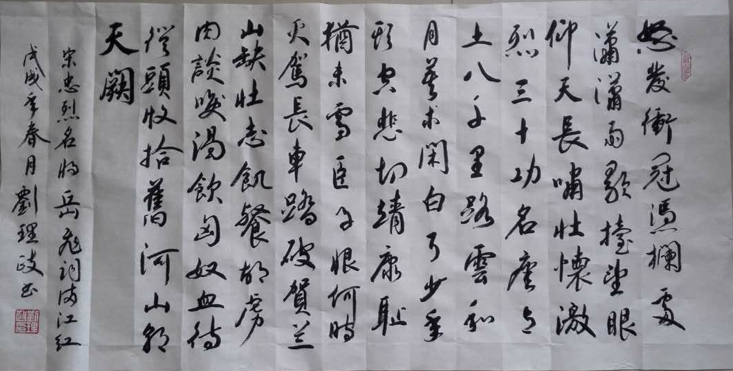 怒發衝冠憑攔處
瀟瀟雨歇擡望眼
仰天長嘯壯懷激
烈三十功名塵與
土八千里路雲和
月莫等閑白了少年
頭空悲切靖康恥
猶未雪臣子恨何時
灭駕長車踏破賀兰
山缺壯志飢餐胡虜
肉談笑渴飲匈奴血待
從頭收拾舊河山朝
天闕
宋忠烈名將岳飛詞滿江紅
戊戌年春月劉理政书